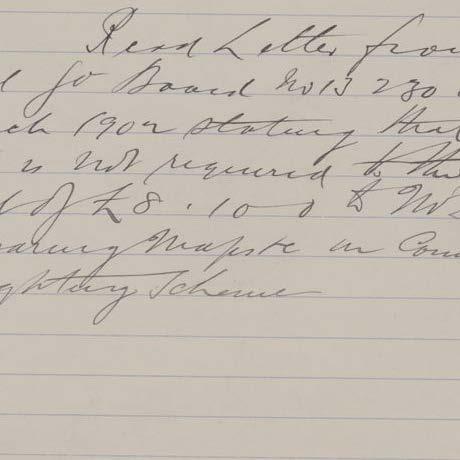 Read Letter from
l Go Board No 13 230
ch 1902 stating that
is not required to the
of £8.10-0 to
Maps in Con
ghting Scheme